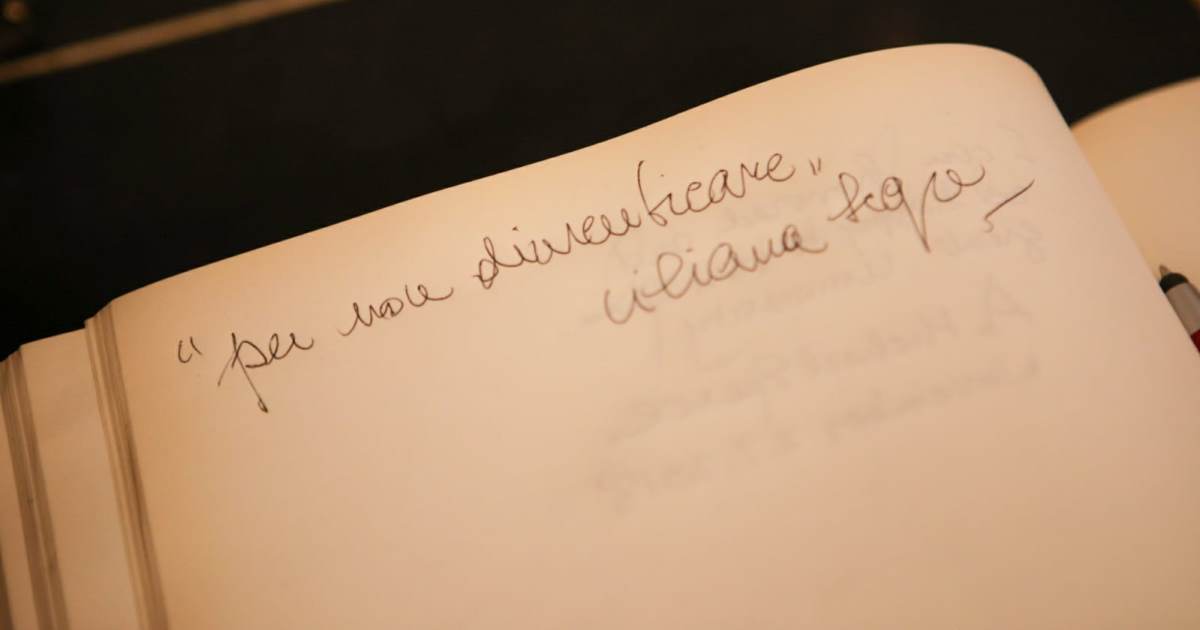 "per non dimenticare"
Liliana Segre